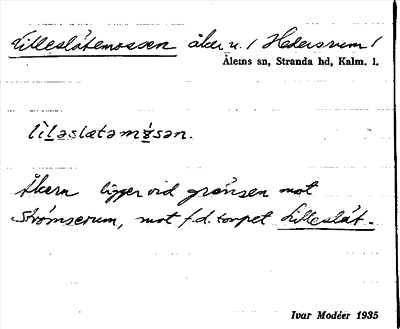 Lilleslätemossen åker u. / Hedersrum /
Ålems sn, Stranda hd, Kalm. l.
lìləslætəmɷ̀sən.
Åkern ligger vid gränsen mot
Strömserum, mot f.d. torpet Lilleslät.
Ivar Modéer 1935